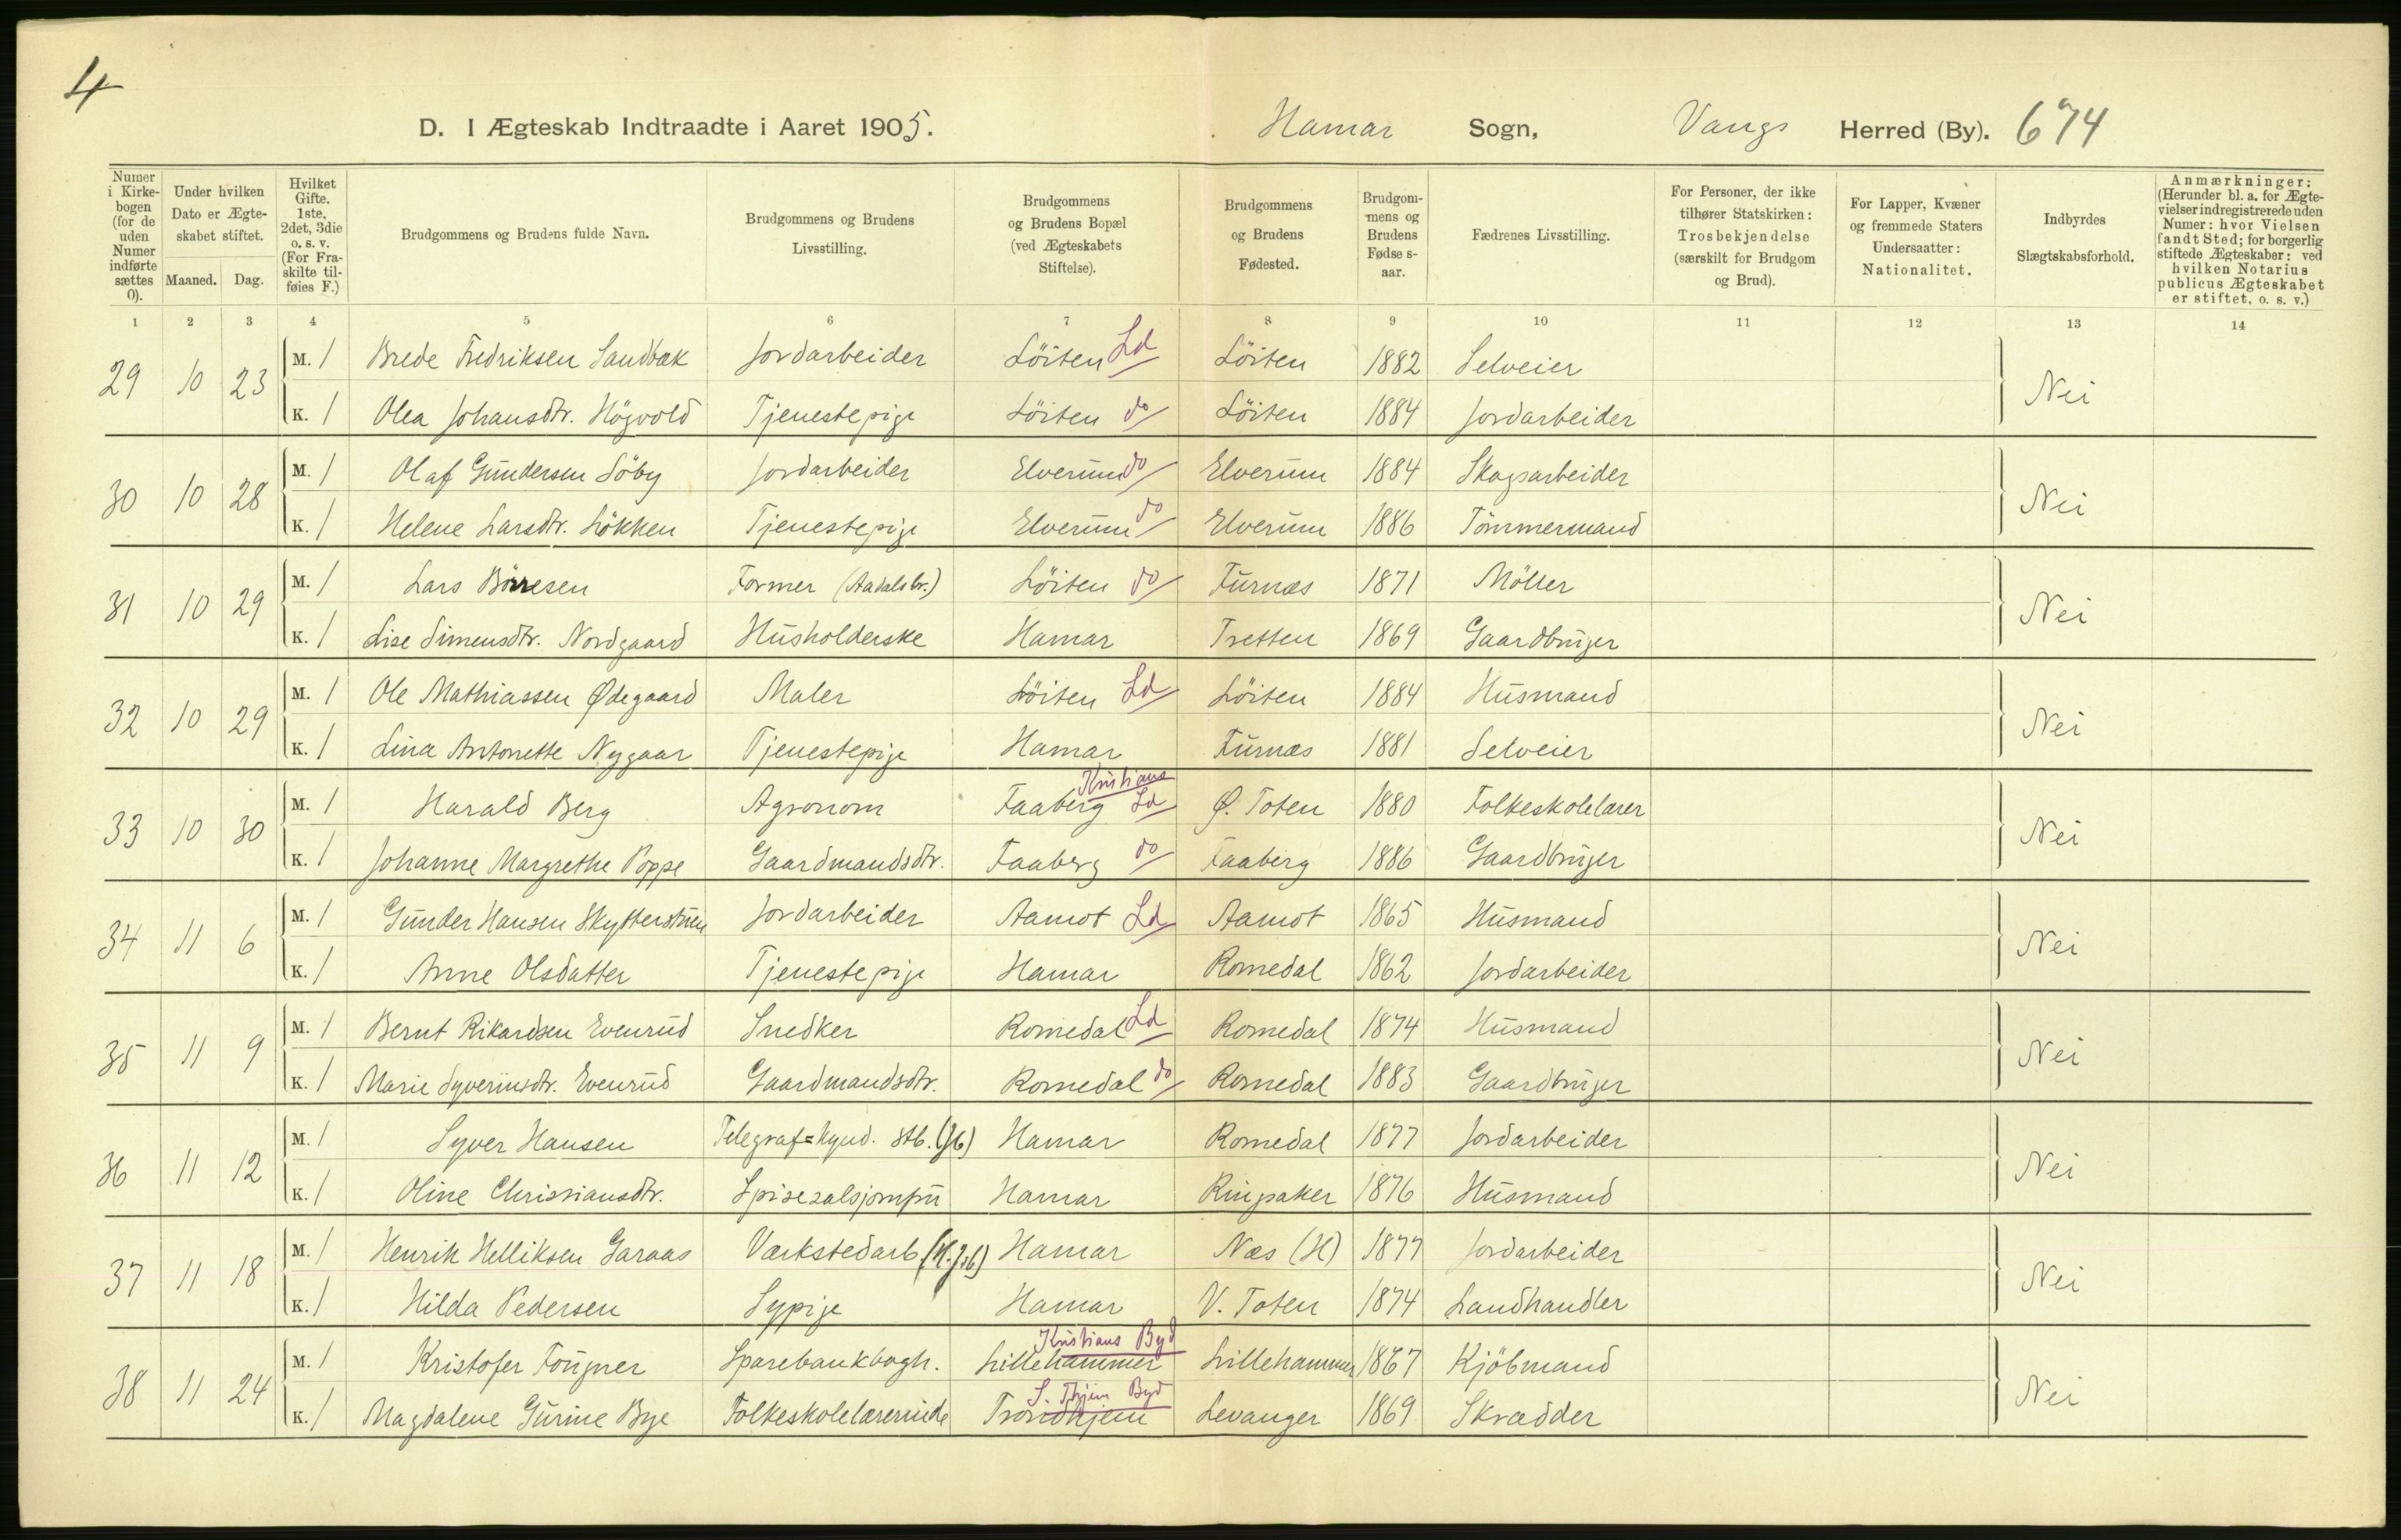 4
D. I Ægteskab Indtraadte i Aaret 1905. Hamar Sogn, Vangs Herred (By). 674
Numer i Kirkebogen (for de uden Numer indførte sættes 0). Under hvilken Dato er Ægteskabet stiftet. Maaned. Dag. Hvilket Gifte. 1ste, 2det, 3die o. s. v. (For Fraskilte tilføies F.) Brudgommens og Brudens fulde Navn. Brudgommens og Brudens Livsstilling. Brudgommens og Brudens Bopæl (ved Ægteskabets Stiftelse). Brudgommens og Brudens Fødested. Brudgommens og Brudens Fødselsaar. Fædrenes Livsstilling. For Personer, der ikke tilhører Statskirken: Trosbekjendelse (særskilt for Brudgom og Brud). For Lapper, Kvæner og fremmede Staters Undersaatter: Nationalitet. Indbyrdes Slægtskabsforhold. Anmærkninger: (Herunder bl. a. for Ægtevielser indregistrerede uden Numer: hvor Vielsen fandt Sted; for borgerlig stiftede Ægteskaber: ved hvilken Notarius publicus Ægteskabet er stiftet, o. s. v.)
1 2 3 4 5 6 7 8 9 10 11 12 13 14
29 10 23 M. 1 Brede Fredriksen Sandbæk Jordarbeider Löiten Ld Löiten 1882 Selveier Nei
K. 1 Olea Johansdtr. Högvold Tjenestepige Löiten do Löiten 1884 Jordarbeider
30 10 28 M. 1 Olaf Gundersen Söby Jordarbeider Elverum do Elverum 1884 Skogsarbeider Nei
K. 1 Helene Larsdtr. Lökken Tjenestepige Elverum do Elverum 1886 Tömmermand
31 10 29 M. 1 Lars Börresen Former (Aadalsbr.) Löiten do Furnæs 1871 Möller Nei
K. 1 Lise Simensdtr. Nordgaard Husholderske Hamar Tretten 1869 Gaardbruger
32 10 29 M. 1 Ole Mathiassen Ødegaard Maler Löiten Ld Löiten 1884 Husmand Nei
K. 1 Lina Antonette Nygaar Tjenestepige Hamar Furnæs 1881 Selveier
33 10 30 M. 1 Harald Berg Agronom Faaberg Kristians Ld Ø. Toten 1880 Folkeskolelærer Nei
K. 1 Johanne Margrethe Poppe Gaardmandsdtr. Faaberg do Faaberg 1886 Gaardbruger
34 11 6 M. 1 Gunder Hansen Jordarbeider Aamot Ld Aamot 1865 Husmand Nei
K. 1 Anne Olsdatter Tjenestepige Hamar Romedal 1862 Jordarbeider
35 11 9 M. 1 Bernt Rikardsen Evenrud Snedker Romedal Ld Romedal 1874 Husmand Nei
K. 1 Marie Syverinsdtr. Evenrud Gaardmandsdtr. Romedal do Romedal 1883 Gaardbruger
36 11 12 M. 1 Syver Hansen Telegraf= Stb. (Jb) Hamar Romedal 1877 Jordarbeider Nei
K. 1 Oline Christiansdtr. Spisesalsjomfru Hamar Ringsaker 1876 Husmand
37 11 18 M. 1 Henrik Helliksen Garaas Værkstedarb (H. Jrb) Hamar Næs (H) 1877 Jordarbeider Nei
K. 1 Hilda Pedersen Sypige Hamar V. Toten 1874 Landhandler
38 11 24 M. 1 Kristofer Fougner Sparebankbogh. Lillehammer Kristians Byd Lillehammer 1867 Kjöbmand Nei
K. 1 Magdalene Gurine Bye Folkeskolelærerinde Trondhjem S. Thjem Byd Levanger 1869 Skrædder